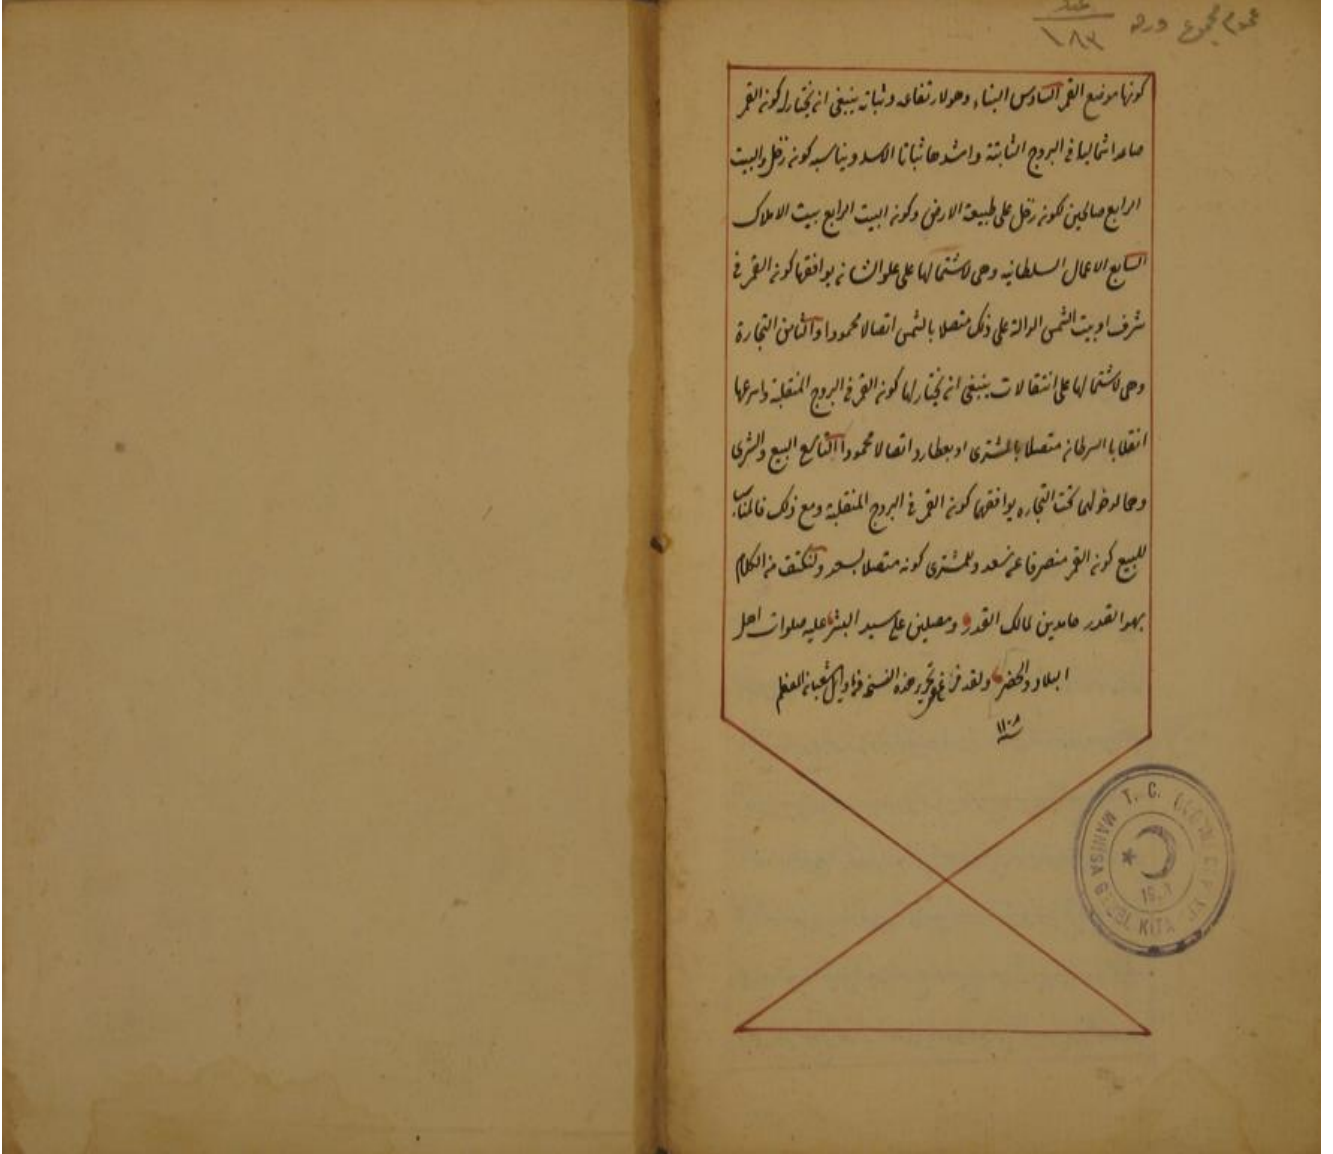 عموم مجموع ورق عدد
١٨٣
كونها موضع القمر السادس البناء وهو لارتفاعه وثباته ينبغى ان يختار له كون القمر
صاعدا شماليا فى البروج الثابتة واشدها ثباتا الاسد ويناسبه كون زحل والبيت
الرابع صالحين لكون زحل على طبيعة الارض وكون البيت الرابع بيت الاملاك
السابع الاعمال السلطانيه وهى لاشتمالها على علو الشان يوافقها كون القمر فى
شرف او بيت الشمس الدالة على ذلك متصلا بالشمس اتصالا محمودا والثامن التجارة
وهى لاشتمالها على انتقالات ينبغى ان يختار لها كون القمر فى البروج المنقلبة واسرعها
انقلابا السرطان متصلا بالمشترى او بعطارد اتصالا محمودا التاسع البيع والشرى
وهما لدخولهما تحت التجاره يوافقهما كون القمر فى البروج المنقلبة ومع ذلك فالمناسب
للبيع كون القمر منصرفا عن سعد وللمشترى كونه متصلا بسعد ولنكتف من الكلام
بهذا القدر حامدين لمالك القدر ومصلين على سيد البشر عليه صلوات اهل
البلاد والحضر ولقد فرغ تحرير هذه النسخه فى اوائل شعبان المعظم
سنه ١١٠٨
T. C.
MANİSA GENEL KİTA